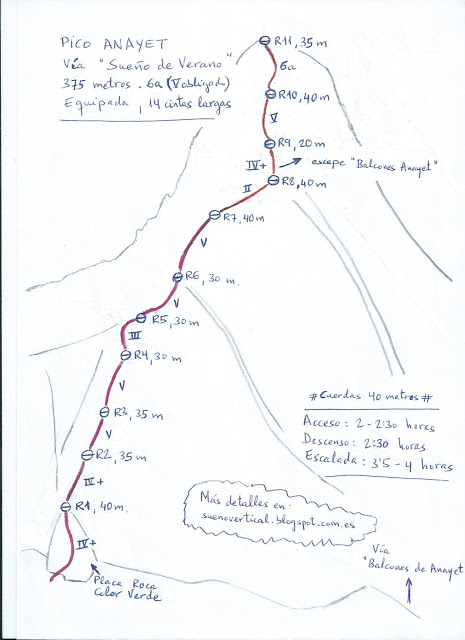 PICO ANAYET
Vía "Sueño de Verano"
375 metros . 6a (V obligado)
Equipada , 14 cintas largas
R11, 35 m
6a
R10, 40 m
V
R9, 20 m
IV+
escape "Balcones Anayet"
R8, 40 m
II
R7, 40 m
V
R6, 30 m.
V
R5, 30 m
III
R4, 30 m
V
R3, 35 m
V
R2, 35 m
IV+
R1, 40 m.
IV+
Placa Roca
Color Verde
#Cuerdas 40 metros#
Acceso: 2 - 2:30 horas
Descenso: 2:30 horas
Escalada: 3'5 - 4 horas
Más detalles en:
suenovertical.blogspot.com.es
Vía
"Balcones de Anayet